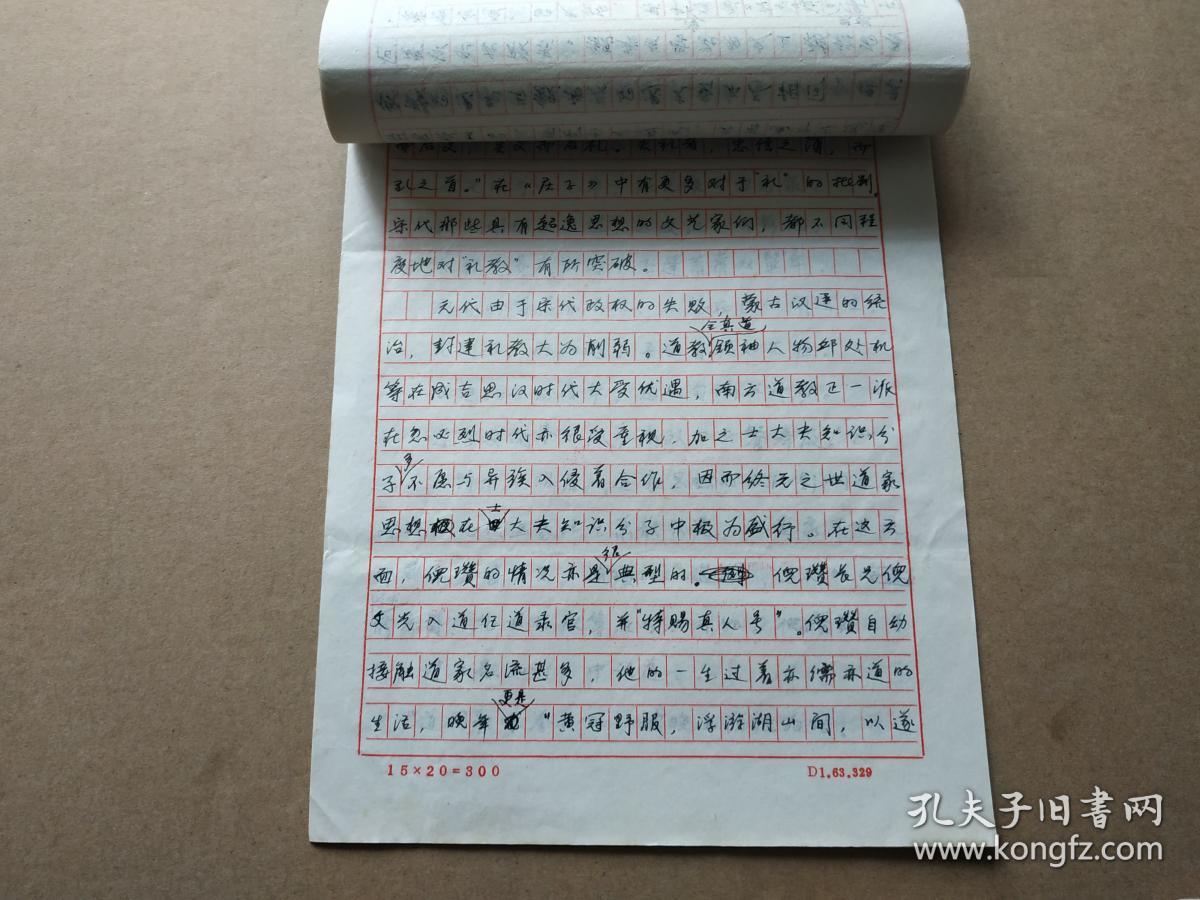 而后义，失义而后礼。夫礼者，忠信之薄，而
乱之首。”在《庄子》中有更多对于“礼”的批判。
宋代那些具有超逸思想的文艺家们，都不同程
度地对“礼教”有所突破。
元代由于宋代政权的失败，蒙古汉廷的统
治，封建礼教大为削弱。道教全真道领袖人物邱处机
等在成吉思汗时代大受优遇，南方道教正一派
在忽必烈时代亦很受重视，加之士大夫知识分
子多不愿与异族入侵者合作，因而终元之世道家
思想在士大夫知识分子中极为盛行。在这方
面，倪瓒的情况亦是很典型的。倪瓒长兄倪
文光入道任道录官，并“特赐真人号”。倪瓒自幼
接触道家名流甚多，他的一生过着亦儒亦道的
生活，晚年更是“黄冠野服，浮游湖山间，以遂
15×20=300
D1.63.329
孔夫子旧书网
www.kongfz.com